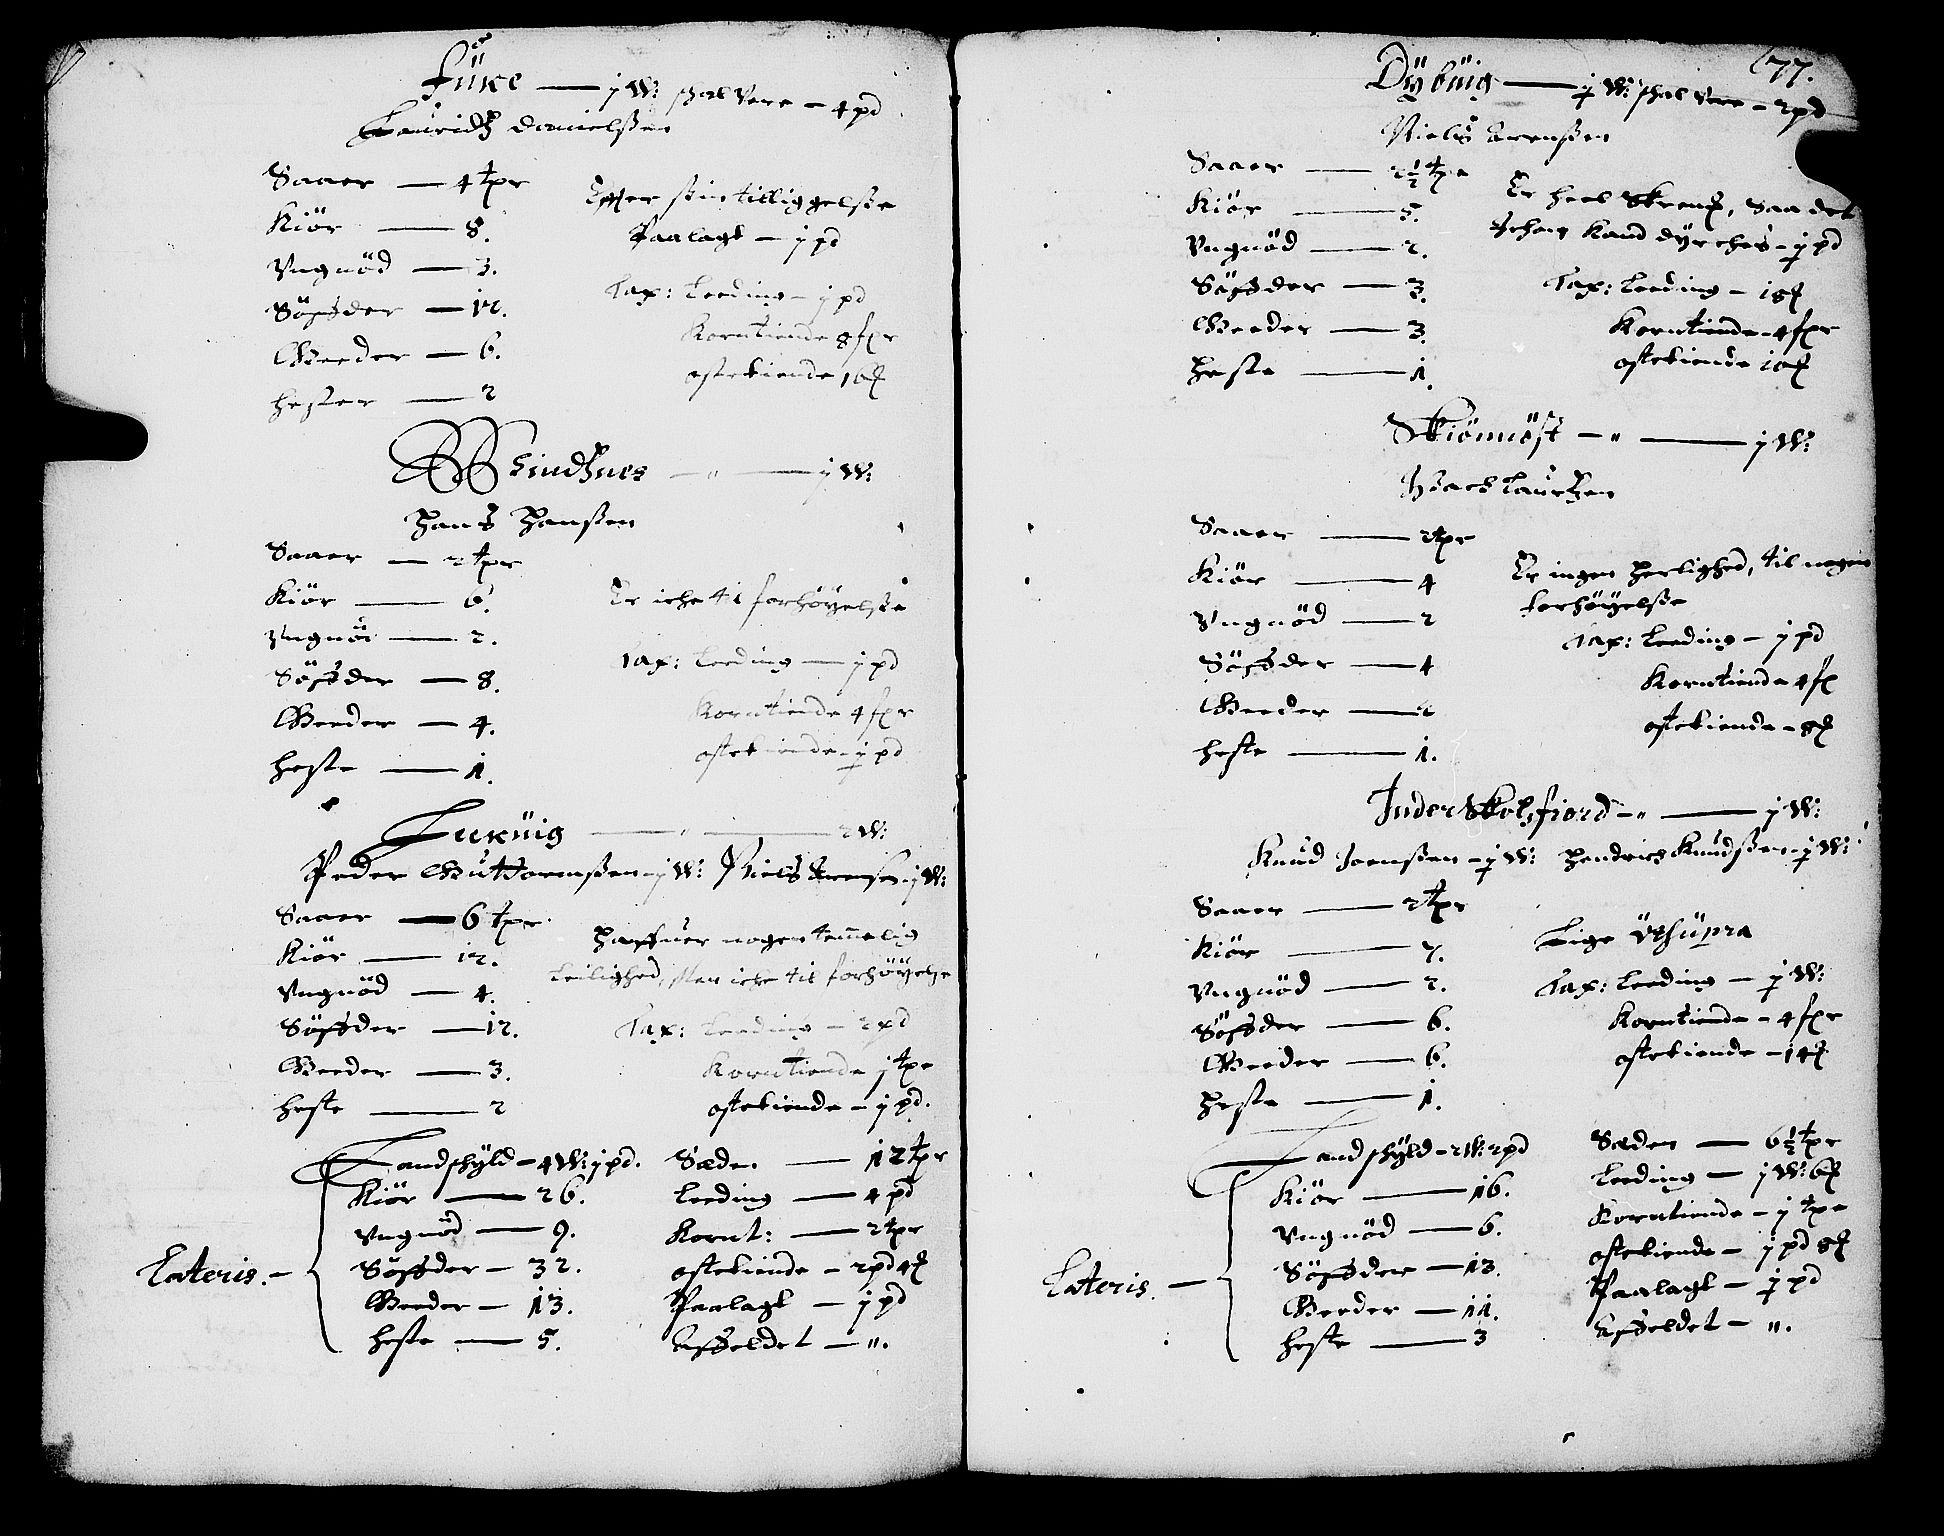 Füxe — j W: skal Vere – 4 pd
Lauridtz Danielssen
Saaer — 4 tpr
Kiör — 8.
Vngnöd — 3.
Söffder — 12.
Weeder — 6.
hester — 2
Effter sin tilliggelsse
Paalagt – j pd
Tax: Leeding – j pd
Korntiende 8 spr
ostetiende 16
Windtznes — " — j W:
Hans Hanssen
Saaer — 2 tpr
Kiör — 6.
Vngnöd — 2.
Söffder — 8.
Weeder — 4.
heste — 1.
Er iche til forhöyelsse
Tax: Leeding — j pd
Korntiende 4 spr
ostetiende – j pd
Luxuiig — " — 2 W:
Peder Guttormssen – j W: Niels – j W:
Saaer — 6 tpr
Kiör — 12.
Vngnöd — 4.
Söffder — 12.
Weeder — 3.
heste — 2
Haffuer nogen temmelig
Leilighed, Men iche til forhöyelse
Tax: Leeding – 2 pd
Korntiende j tpe
ostetiende – j pd.
Lateris. –
Landskyld – 4 W: j pd.
Kiör — 26.
Vngnöd — 9.
Söffder – 32.
Weeder – 13.
heste — 5.
Sæden — 12 tpr
Leeding — 4 pd
Kornt: — 2 tpr
ostetiende – 2 pd 4
Paalagt – j pd
Affeldet – ".
177.
Dybuiig — j W: skal Vere – 2 pd
Niels
Saaer — 2½ tpe
Kiör — 5.
Vngnöd — 2.
Söffder — 3.
Weeder — 3.
Heste — 1.
Er heel Skrent, Saa det
iche kand dyrches – j pd
Tax: Leeding – 18
Korntiende – 4 spr
ostetiende 10
Skiönnöst – " — j W:
Isach Lauritzen
Saaer — 2 tpr
Kiör — 4
Vngnöd — 2
Söffder — 4
Weeder — 2
heste — 1.
Er ingen Herlighed, til nogen
forhöyelsse
Tax: Leeding – j pd
Korntiende 4 sp
ostetiende – 8
Inder Skolsfiord – " — j W:
Knud Joenssen – j W: Hendrich Knudssen – j W:
Saaer — 2 tpr
Kiör — 7.
Vngnöd — 2.
Söffder — 6.
Weeder — 6.
Heste — 1.
Lige Vtsupra
Tax: Leeding – j W:
Korntiende – 4 spr
ostetiende – 14
Lateris. –
Landskyld – 2 W: 2 pd
Kiör — 16.
Vngnöd — 6.
Söffder — 13.
Weeder — 11.
heste — 3
Sæden — 6½ tpr
Leeding – j W: 6
Korntiende – j tpe
ostetiende – j pd 8
Paalagt – j pd
Affeldet – ".